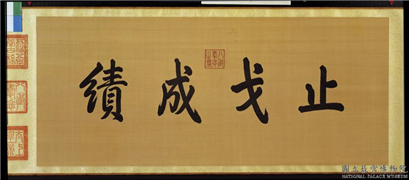 止戈成績
國立故宮博物院
NATIONAL PALACE MUSEUM